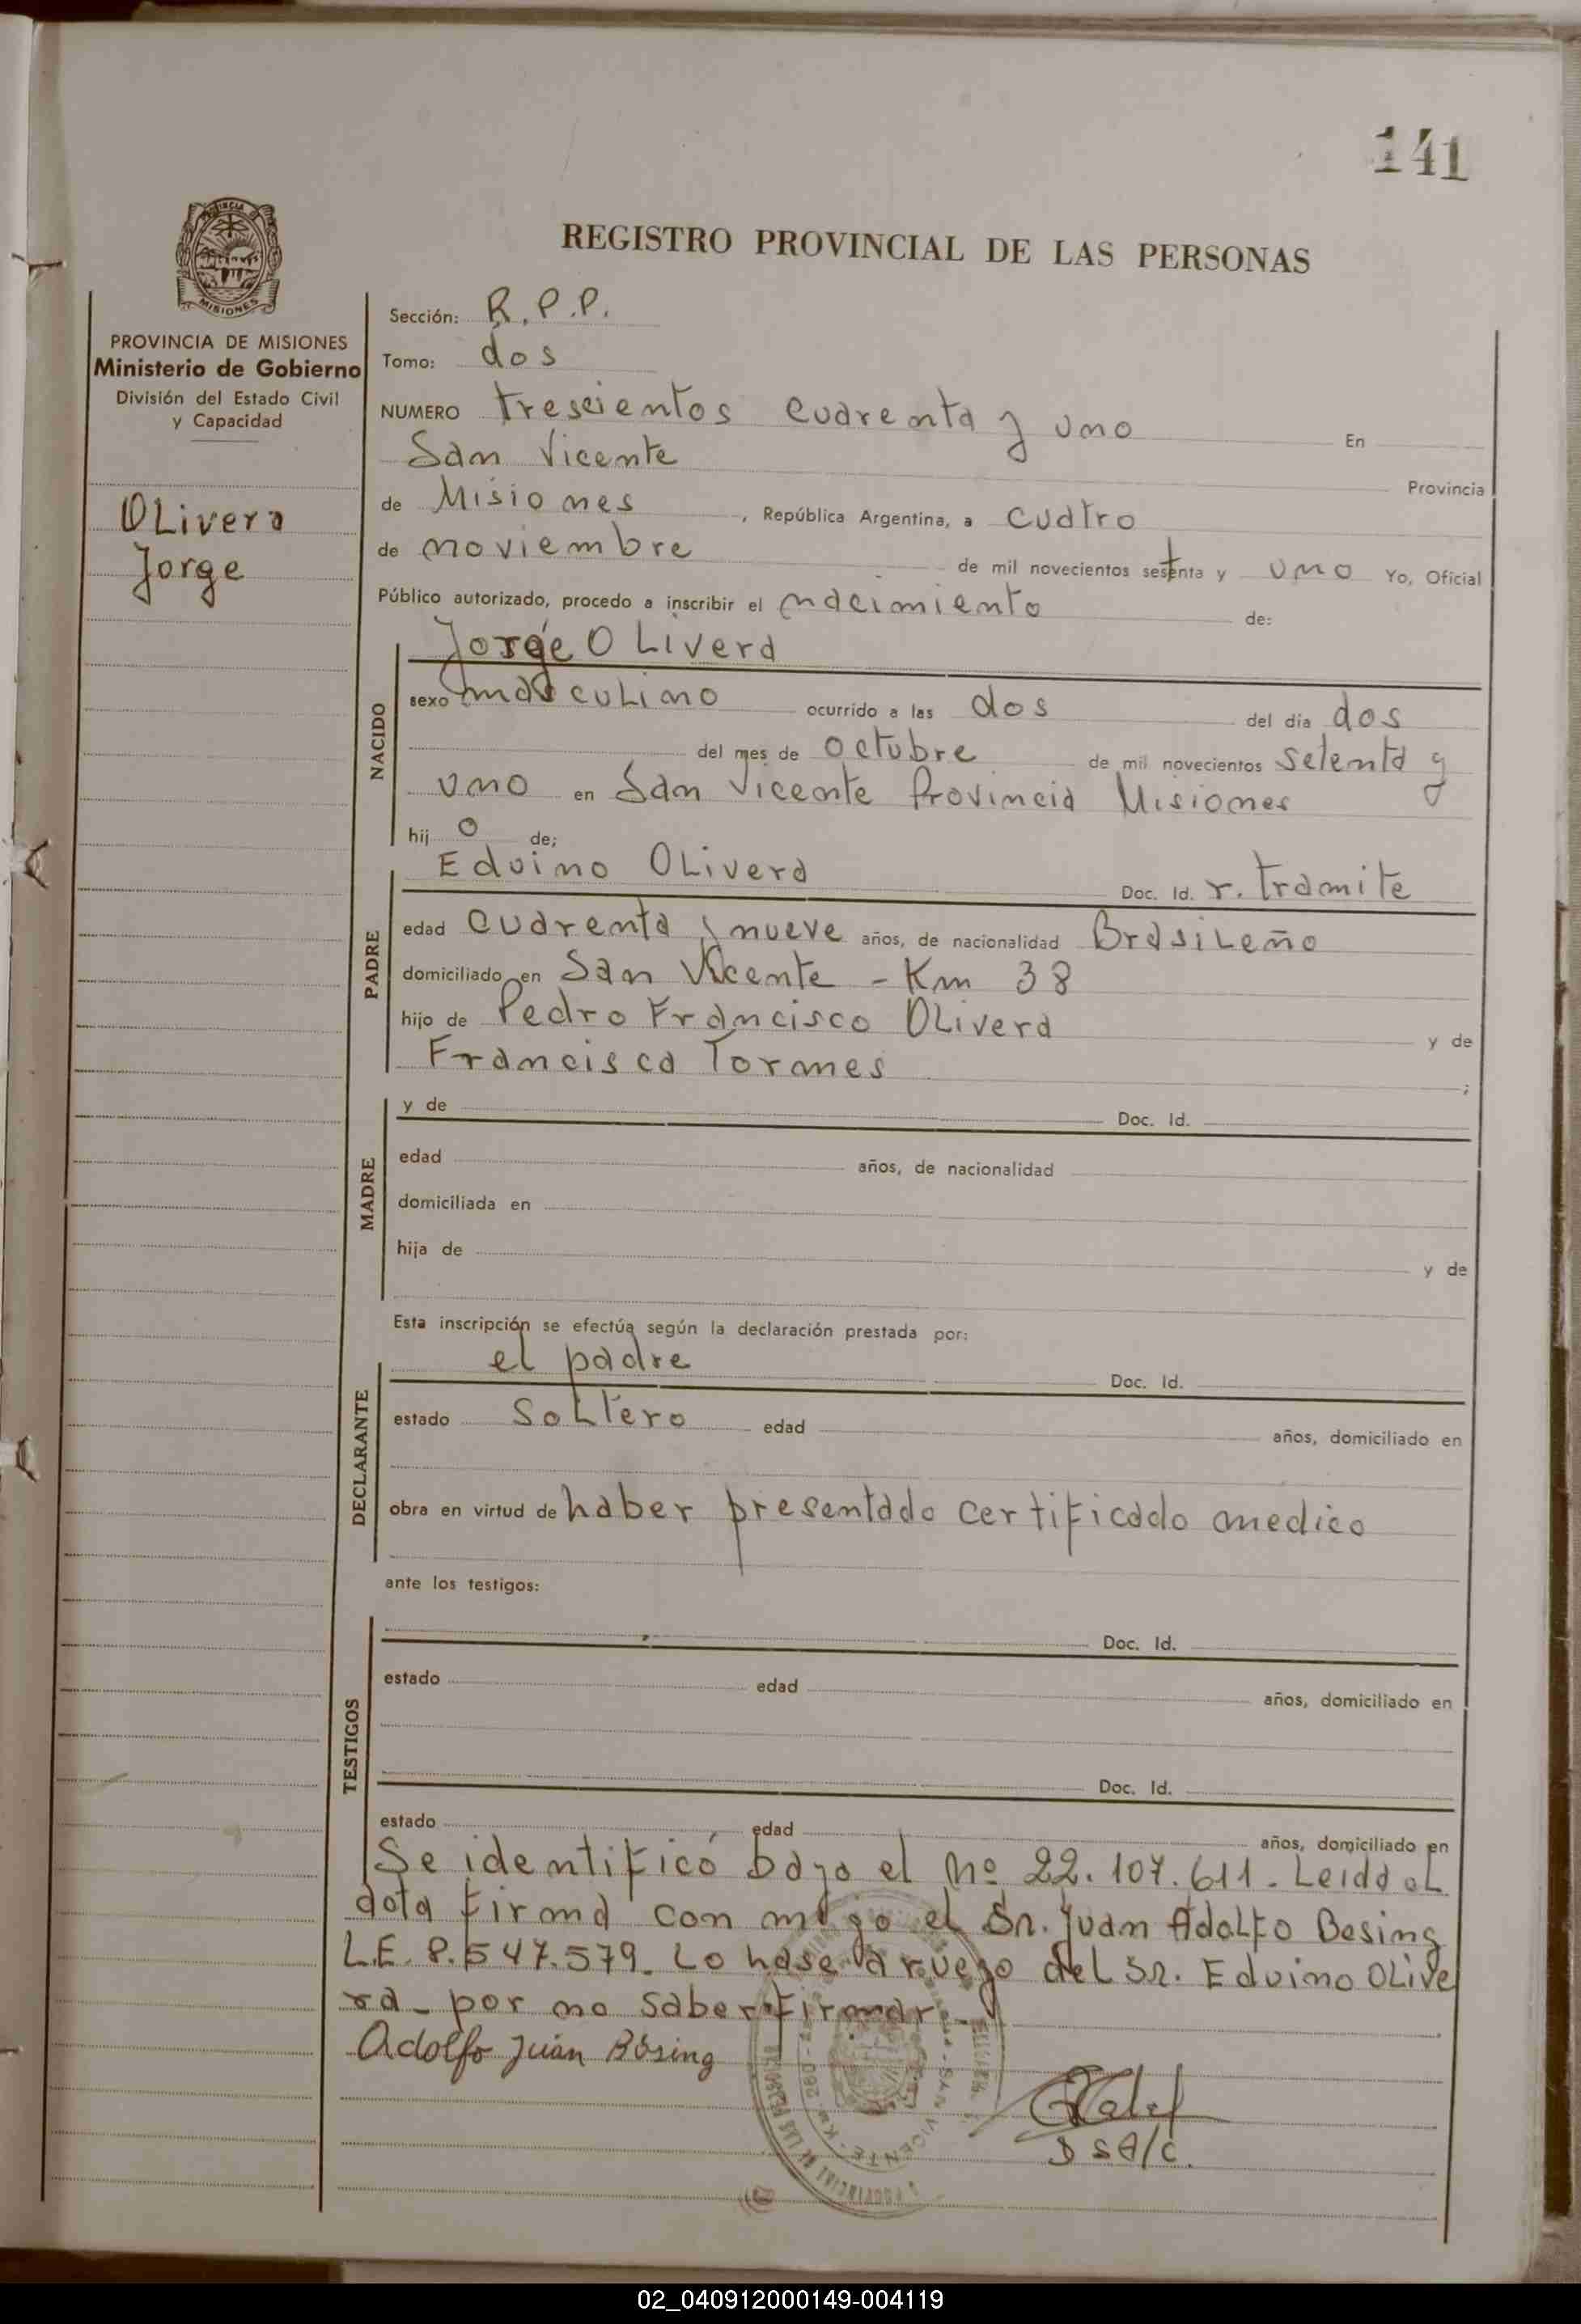 141
REGISTRO PROVINCIAL DE LAS PERSONAS
PROVINCIA DE MISIONES
Ministerio de Gobierno
División del Estado Civil
y Capacidad
OLivera
Jorge
Sección: R.P.P.
Tomo: dos
NUMERO trescientos cuarenta y uno En
San Vicente Provincia
de Misiones, República Argentina, a cuatro
de noviembre de mil novecientos sesenta y uno Yo, Oficial
Público autorizado, procedo a inscribir el nacimiento de:
NACIDO
Jorge OLivera
sexo masculino ocurrido a las dos del día dos
del mes de octubre de mil novecientos setenta y
uno en San Vicente Provincia Misiones
hij o de;
PADRE
Eduino OLivera Doc. Id. r. tramite
edad cuarenta y nueve años, de nacionalidad BrasiLeño
domiciliado en San Vicente - Km 38
hijo de Pedro Francisco OLivera y de
Francisca Tormes ;
MADRE
y de Doc. Id.
edad años, de nacionalidad
domiciliada en
hija de y de
Esta inscripción se efectúa según la declaración prestada por:
DECLARANTE
el padre Doc. Id.
estado soLtero edad años, domiciliado en
obra en virtud de haber presentado certificado medico
ante los testigos:
TESTIGOS
Doc. Id.
estado edad años, domiciliado en
Doc. Id.
estado edad años, domiciliado en
Se identificó bajo el Nº 22.107.611. Leida eL
acta firma con migo el Sr. Juan AdoLfo Besing
L.E. 8.547.579. Lo hase a ruego del Sr. Eduino OLive
ra - por no saber firmar.
Adolfo Juan Bösing
02_040912000149-004119